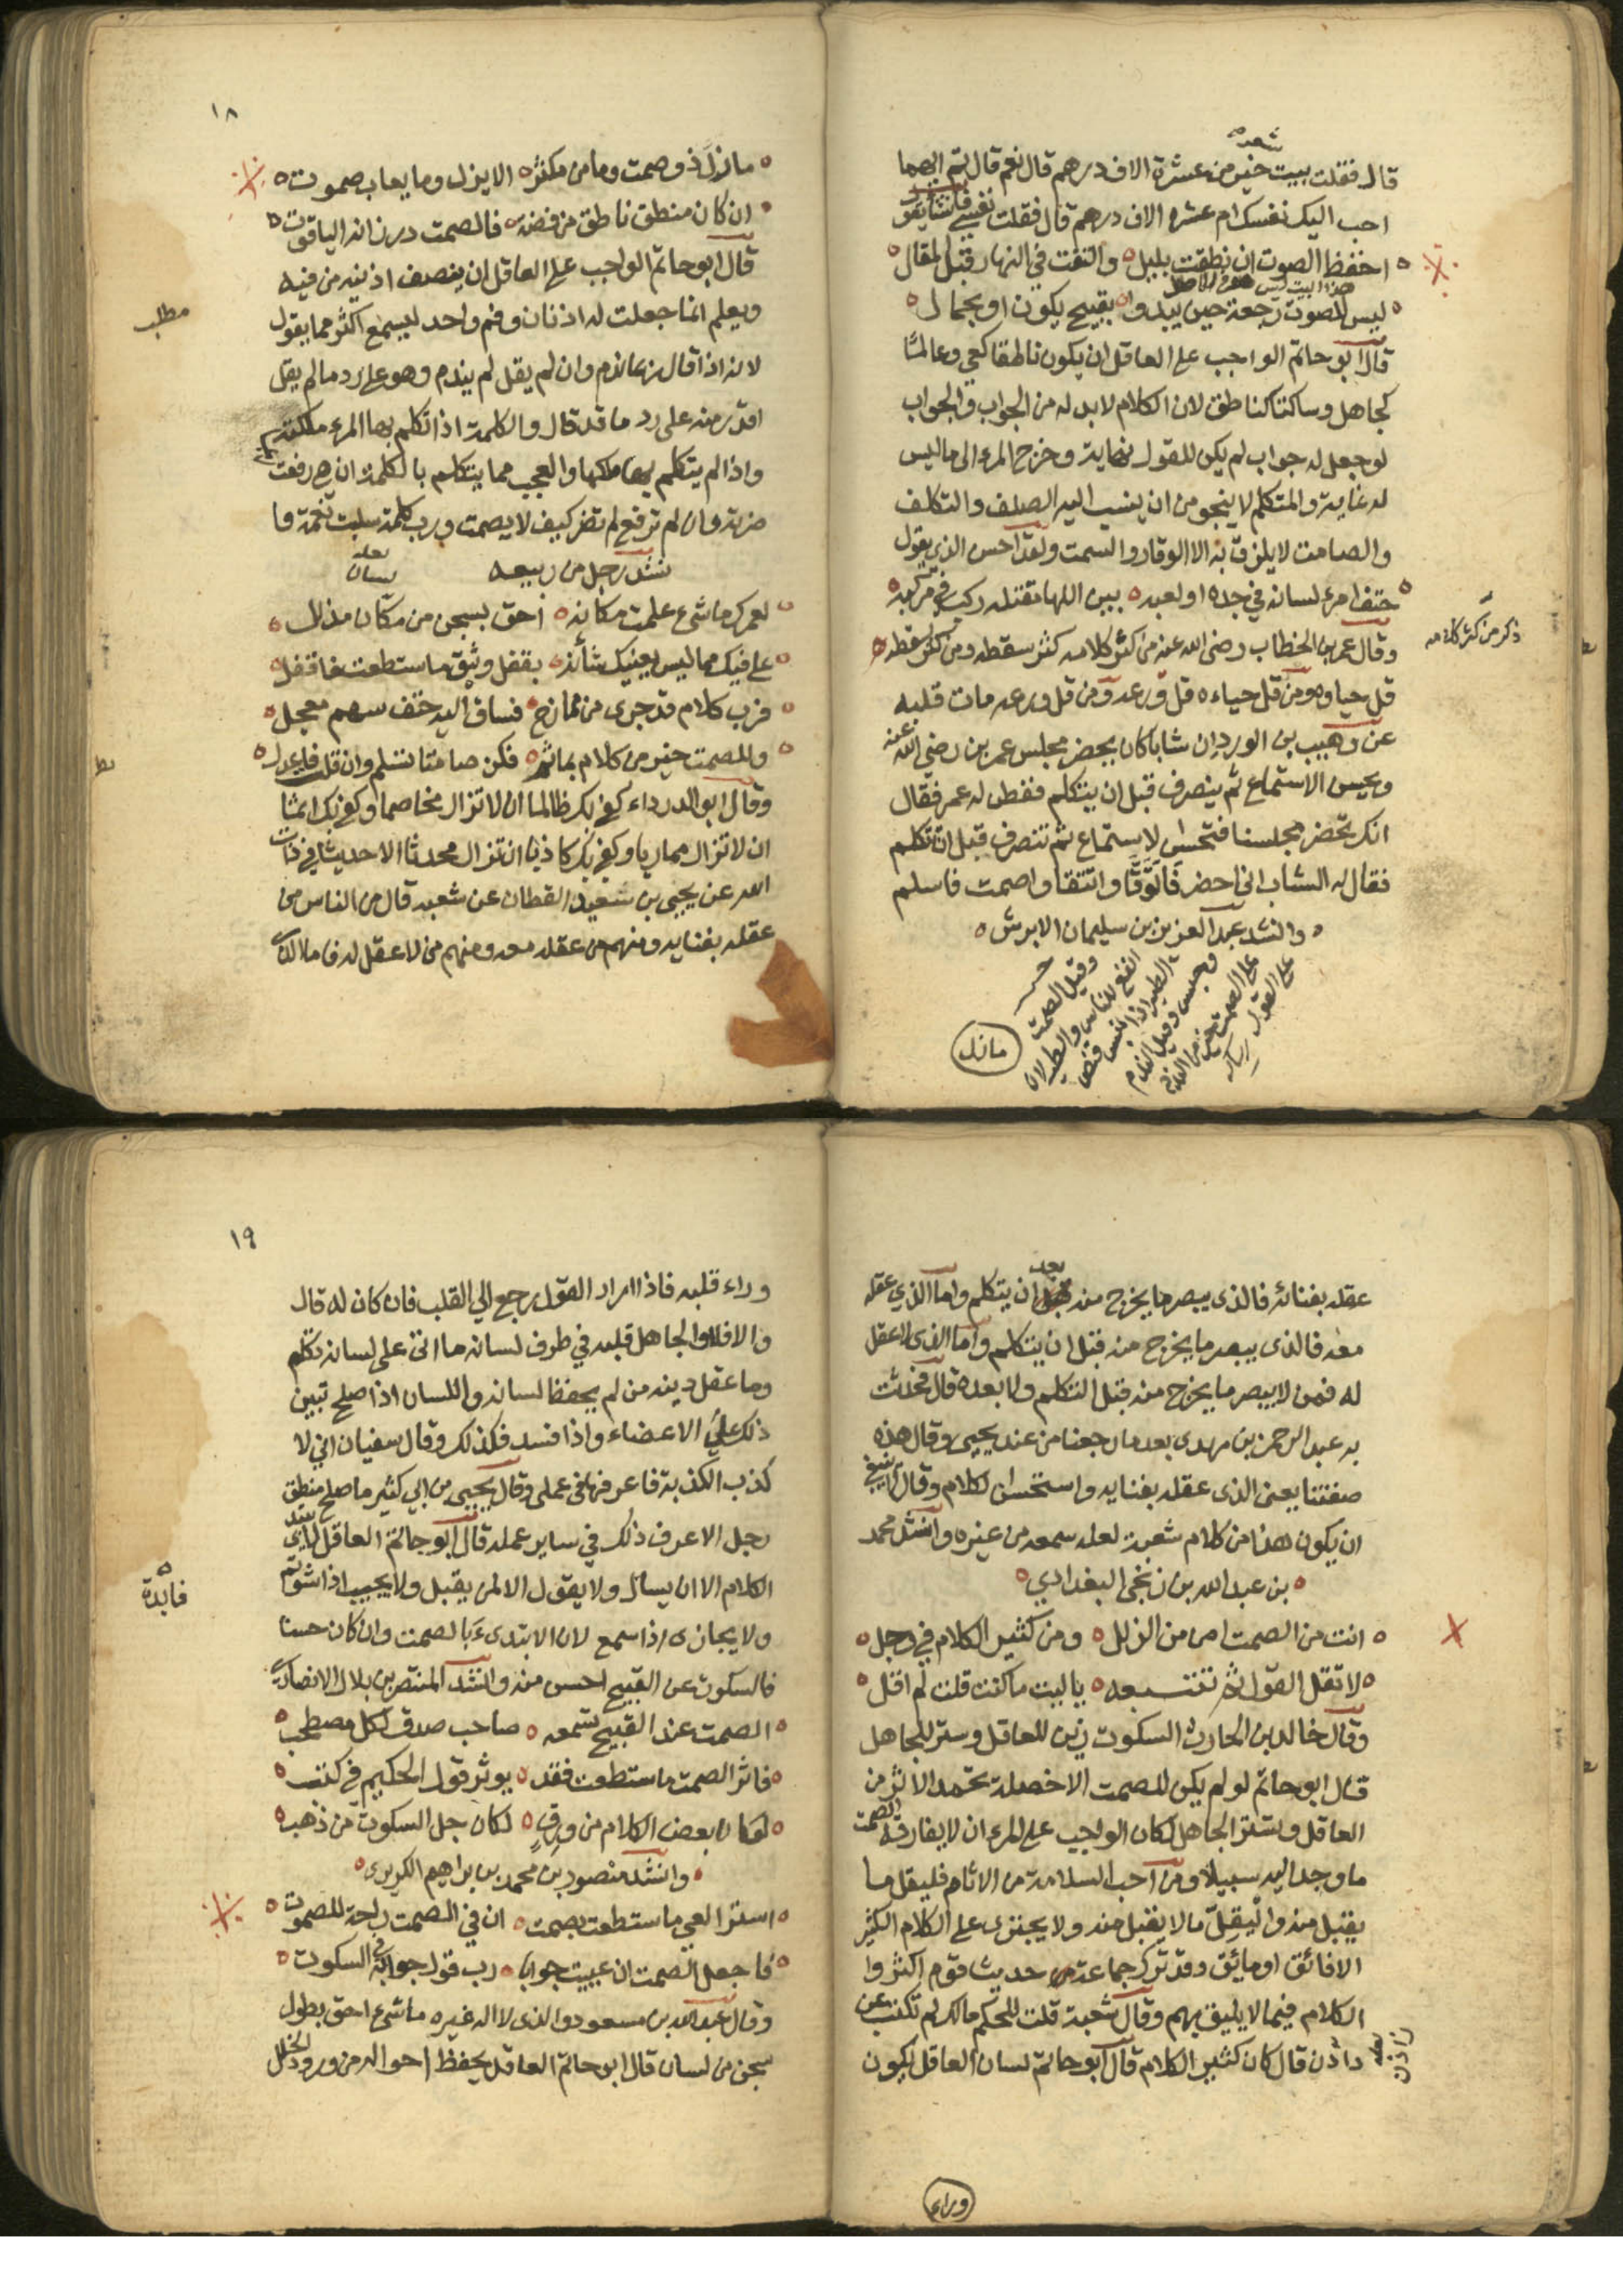 شعره
قال فقلت ببيت خير من عشرة الاف درهم قال نعم قال ثم ايهما
احب اليك نفسك ام عشره الاف درهم قال فقلت نفسي فانشأ يقول
احفظ الصوت ان نطقت بليل والتفت في النهار قبل المقال
هذا البيت ليس
ليس للصوت رجعة حين يبدوا بقبيح يكون او بجمال
قال ابو حاتم الواجب على العاقل ان يكون ناطقا كعي وعالما
كجاهل وساكتا كناطق لان الكلام لا بد له من الجواب والجواب
لو جعل له جواب لم يكن للقول نهاية وخرج المرء الى ما ليس
له غاية والمتكلم لا ينجو من ان ينسب اليه الصلف والتكلف
والصامت لا يليق به الا الوقار والسمت ولقد احسن الذي يقول
حتف امرء لسانه في جده او لعبه بين اللها مقتله ركب في مركبه
ذكر من كثر كلامه
وقال عمر بن الخطاب رضى الله عنه من كثر كلامه كثر سقطه ومن كثر سقطه
قل حياوه ومن قل حياءه قل ورعه ومن قل ورعه مات قلبه
عن وهيب بن الورد ان شابا كان يحضر مجلس عمر بن رضي الله عنه
ويحسن الاستماع ثم ينصرف قبل ان يتكلم ففطن له عمر فقال
انك تحضر مجلسنا فتحسن لاستماع ثم تنصرف قبل ان تكلم
فقال له الشاب اني احضر فاتوقا واتنقا واصمت فاسلم
وانشد عبد العزيز بن سليمان الابرش
وقيل الصمت
انفع للناس والطير لان
الطير اذا انبس قنص
وحبس وقيل الندم
على الصمت خير من الندم
على القول
مازل
١٨
ما زل ذو صمت وما من مكثر الا يزل وما يعاب صموت
ان كان منطق ناطق من فضة فالصمت در زانه الياقوت
قال ابو حاتم الواجب على العاقل ان ينصف اذنيه من فيه
مطلب
ويعلم انما جعلت له اذنان وفم واحد ليسمع اكثر مما يقول
لانه اذا قال ربما ندم وان لم يقل لم يندم وهو على رد ما لم يقل
اقدر منه على رد ما قد قال والكلمة اذا تكلم بها المرء ملكته
واذا لم يتكلم بها ملكها والعجب مما يتكلم بالكلمة ان هي رفعت
ضرته وان لم ترفع لم تضر كيف لا يصمت ورب كلمة سلبت نعمة وا
نشد رجل من ربيعه
لعله لسان
لعمرك ما شيء علمت مكانه احق بسجن من مكان مذلل
على فيك مما ليس يعنيك شأنه بقفل وثيق ما استطعت فاقفل
فرب كلام قد جرى من ممازح فساق اليه حتف سهم معجل
وللصمت خير من كلام بمأثم فكن صامتا تسلم وان قلت فاعدل
وقال ابو الدرداء كفى بك ظالما ان لا تزال مخاصما وكفى بك اثما
ان لا تزال مماريا وكفى بك كاذبا ان تزال محدثا الا حديثا في ذات
الله عن يحيى بن سعيد القطان عن شعبه قال من الناس من
عقله بفنايه ومنهم من عقله معه ومنهم من لا عقل له فاما الذي
بعد
عقله بفنائه فالذى يبصر ما يخرج منه ان يتكلم واما الذي عقله
معه فالذى يبصر ما يخرج منه قبل ان يتكلم واما الذى لا عقل
له فمن لا يبصر ما يخرج منه قبل التكلم ولا بعده قال فحدثت
به عبد الرحمن بن مهدى بعد ما رجعنا من عند يحيى وقال هذه
صفتنا يعنى الذى عقله بفنايه واستحسن لكلام وقال لا ينبغي
ان يكون هذا من كلام شعبة لعله سمعه من غيره وانشد محمد
بن عبد الله بن زنجى البغدادي
انت من الصمت امن من الزلل ومن كثير الكلام في وجل
لا تقل القول ثم تتبعه يا ليت ما كنت قلت لم اقل
وقال خالد بن الحارث السكوت زين للعاقل وستر للجاهل
قال ابو حاتم لو لم يكن للصمت الا خصلة تحمد الا ثر من
العاقل وتستر الجاهل لكان الواجب على المرء ان لا يفارقه الصمت
ما وجد اليه سبيلا ومن احب السلامة من الاثام فليقل ما
يقبل منه وليقل ما لا يقبل منه ولا يجترى على الكلام الكثير
الا فائق او مائق وقد ترك جماعة من حديث قوم اكثروا
الكلام فيما لا يليق بهم وقال شعبة قلت للحكم مالك لم تكتب عن
لعله زاذن
داذن قال كان كثير الكلام قال ابو حاتم لسان العاقل يكون
وراء
١٩
وراء قلبه فاذا اراد القول رجع الي القلب فان كان له قال
والا فلا والجاهل قلبه في طرف لسانه ما اتى على لسانه تكلم
وما عقل دينه من لم يحفظ لسانه واللسان اذا صلح تبين
ذلك على الاعضاء واذا فسد فكذلك وقال سفيان اني لا
كذب الكذبة فاعرفها في عملى وقال يحيى بن ابي كثير ما صلح منطق
رجل الا عرف ذلك في ساير عمله قال ابو حاتم العاقل لا يبتدى
فايدة
الكلام الا ان يسال ولا يقول الا لمن يقبل ولا يجيب اذا شوتم
ولا يجازى اذا سمع لان الابتدىء بالصمت وان كان حسنا
فالسكوت عن القبيح احسن منه وانشد المنتصر بن بلال الانصارى
الصمت عند القبيح تسمعه صاحب صدق لكل مصطحب
فاثر الصمت ما ستطعت فقد يوثر قول الحكيم في كتب
لو كان بعض الكلام من ورق لكان جل السكوت من ذهب
وانشد منصور بن محمد بن ابراهيم الكريزى
استر العي ما ستطعت بصمت ان في الصمت راحة للصموت
فاجعل الصمت ان عييت جوابا رب قول جوابه في السكوت
وقال عبد الله بن مسعود والذى لا اله غيره ما شيء احق بطول
سجن من لسان قال ابو حاتم العاقل يحفظ احواله من ورود الخلل